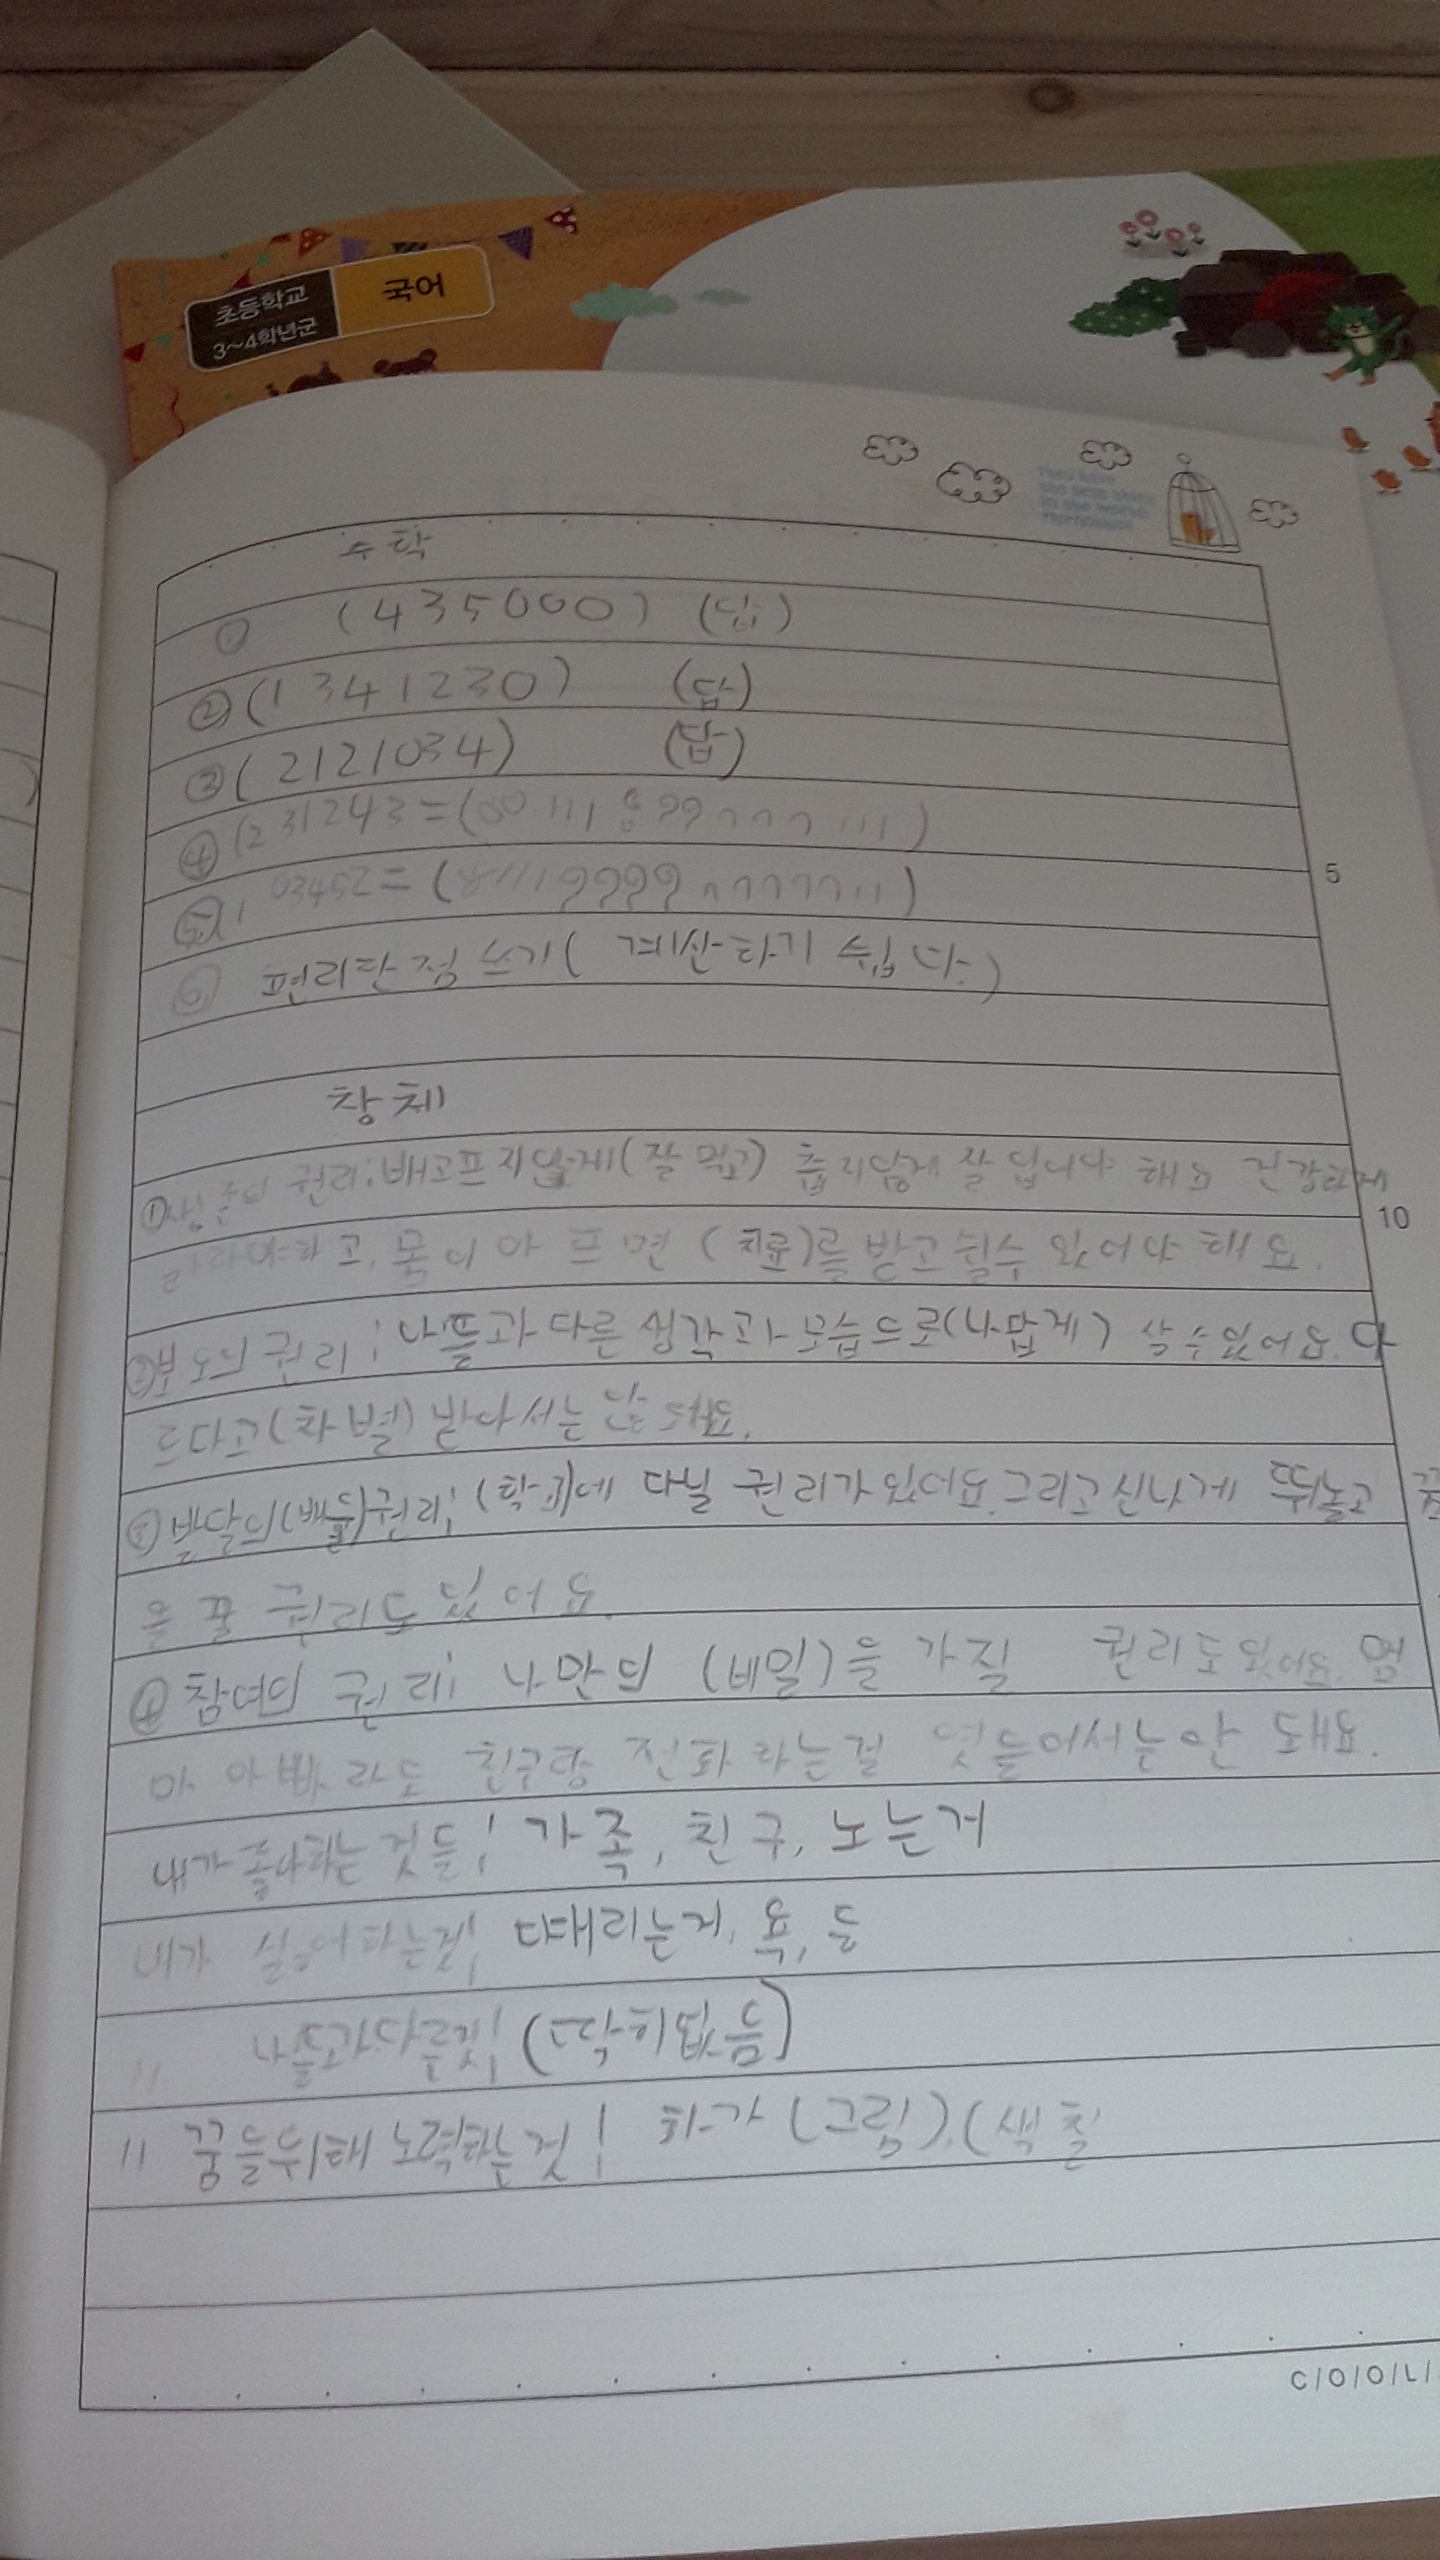 초등학교
3~4학년군
국어
수학
① (435000) (답)
② (1341230) (답)
③ (2121034) (답)
④ (231243=(
⑤ (103452=(
⑥ 편리한 점 쓰기( 계산하기 쉽다.)
5
창체
① 생존의 권리:배고프지않게(잘 먹고) 춥지않게 잘 입어야 해요 건강하게
10
고, 몸이 아프면 (치료)를 받고 쉴수 있어야 해요.
② 보호의 권리: 나들과 다른 생각과 모습으로(나답게) 살 수있어요. 다
르다고(차별) 받아서는 안 돼요.
③ 발달의(배움)권리: (학교)에 다닐 권리가있어요.그리고 신나게 뛰놀고 꿈
을 꿀 권리도 있어요.
④ 참여의 권리: 나만의 (비밀)을 가질 권리도있어요. 엄
마 아빠라도 친구랑 전화하는걸 엿들어서는 안 돼요.
내가 좋아하는 것들: 가족, 친구, 노는거
내가 싫어하는것: 때리는거, 욕, 등
〃 남들과다른것: (딱히없음)
〃 꿈을위해 노력하는것: 화가 (그림),(색칠
C/O/O/L/